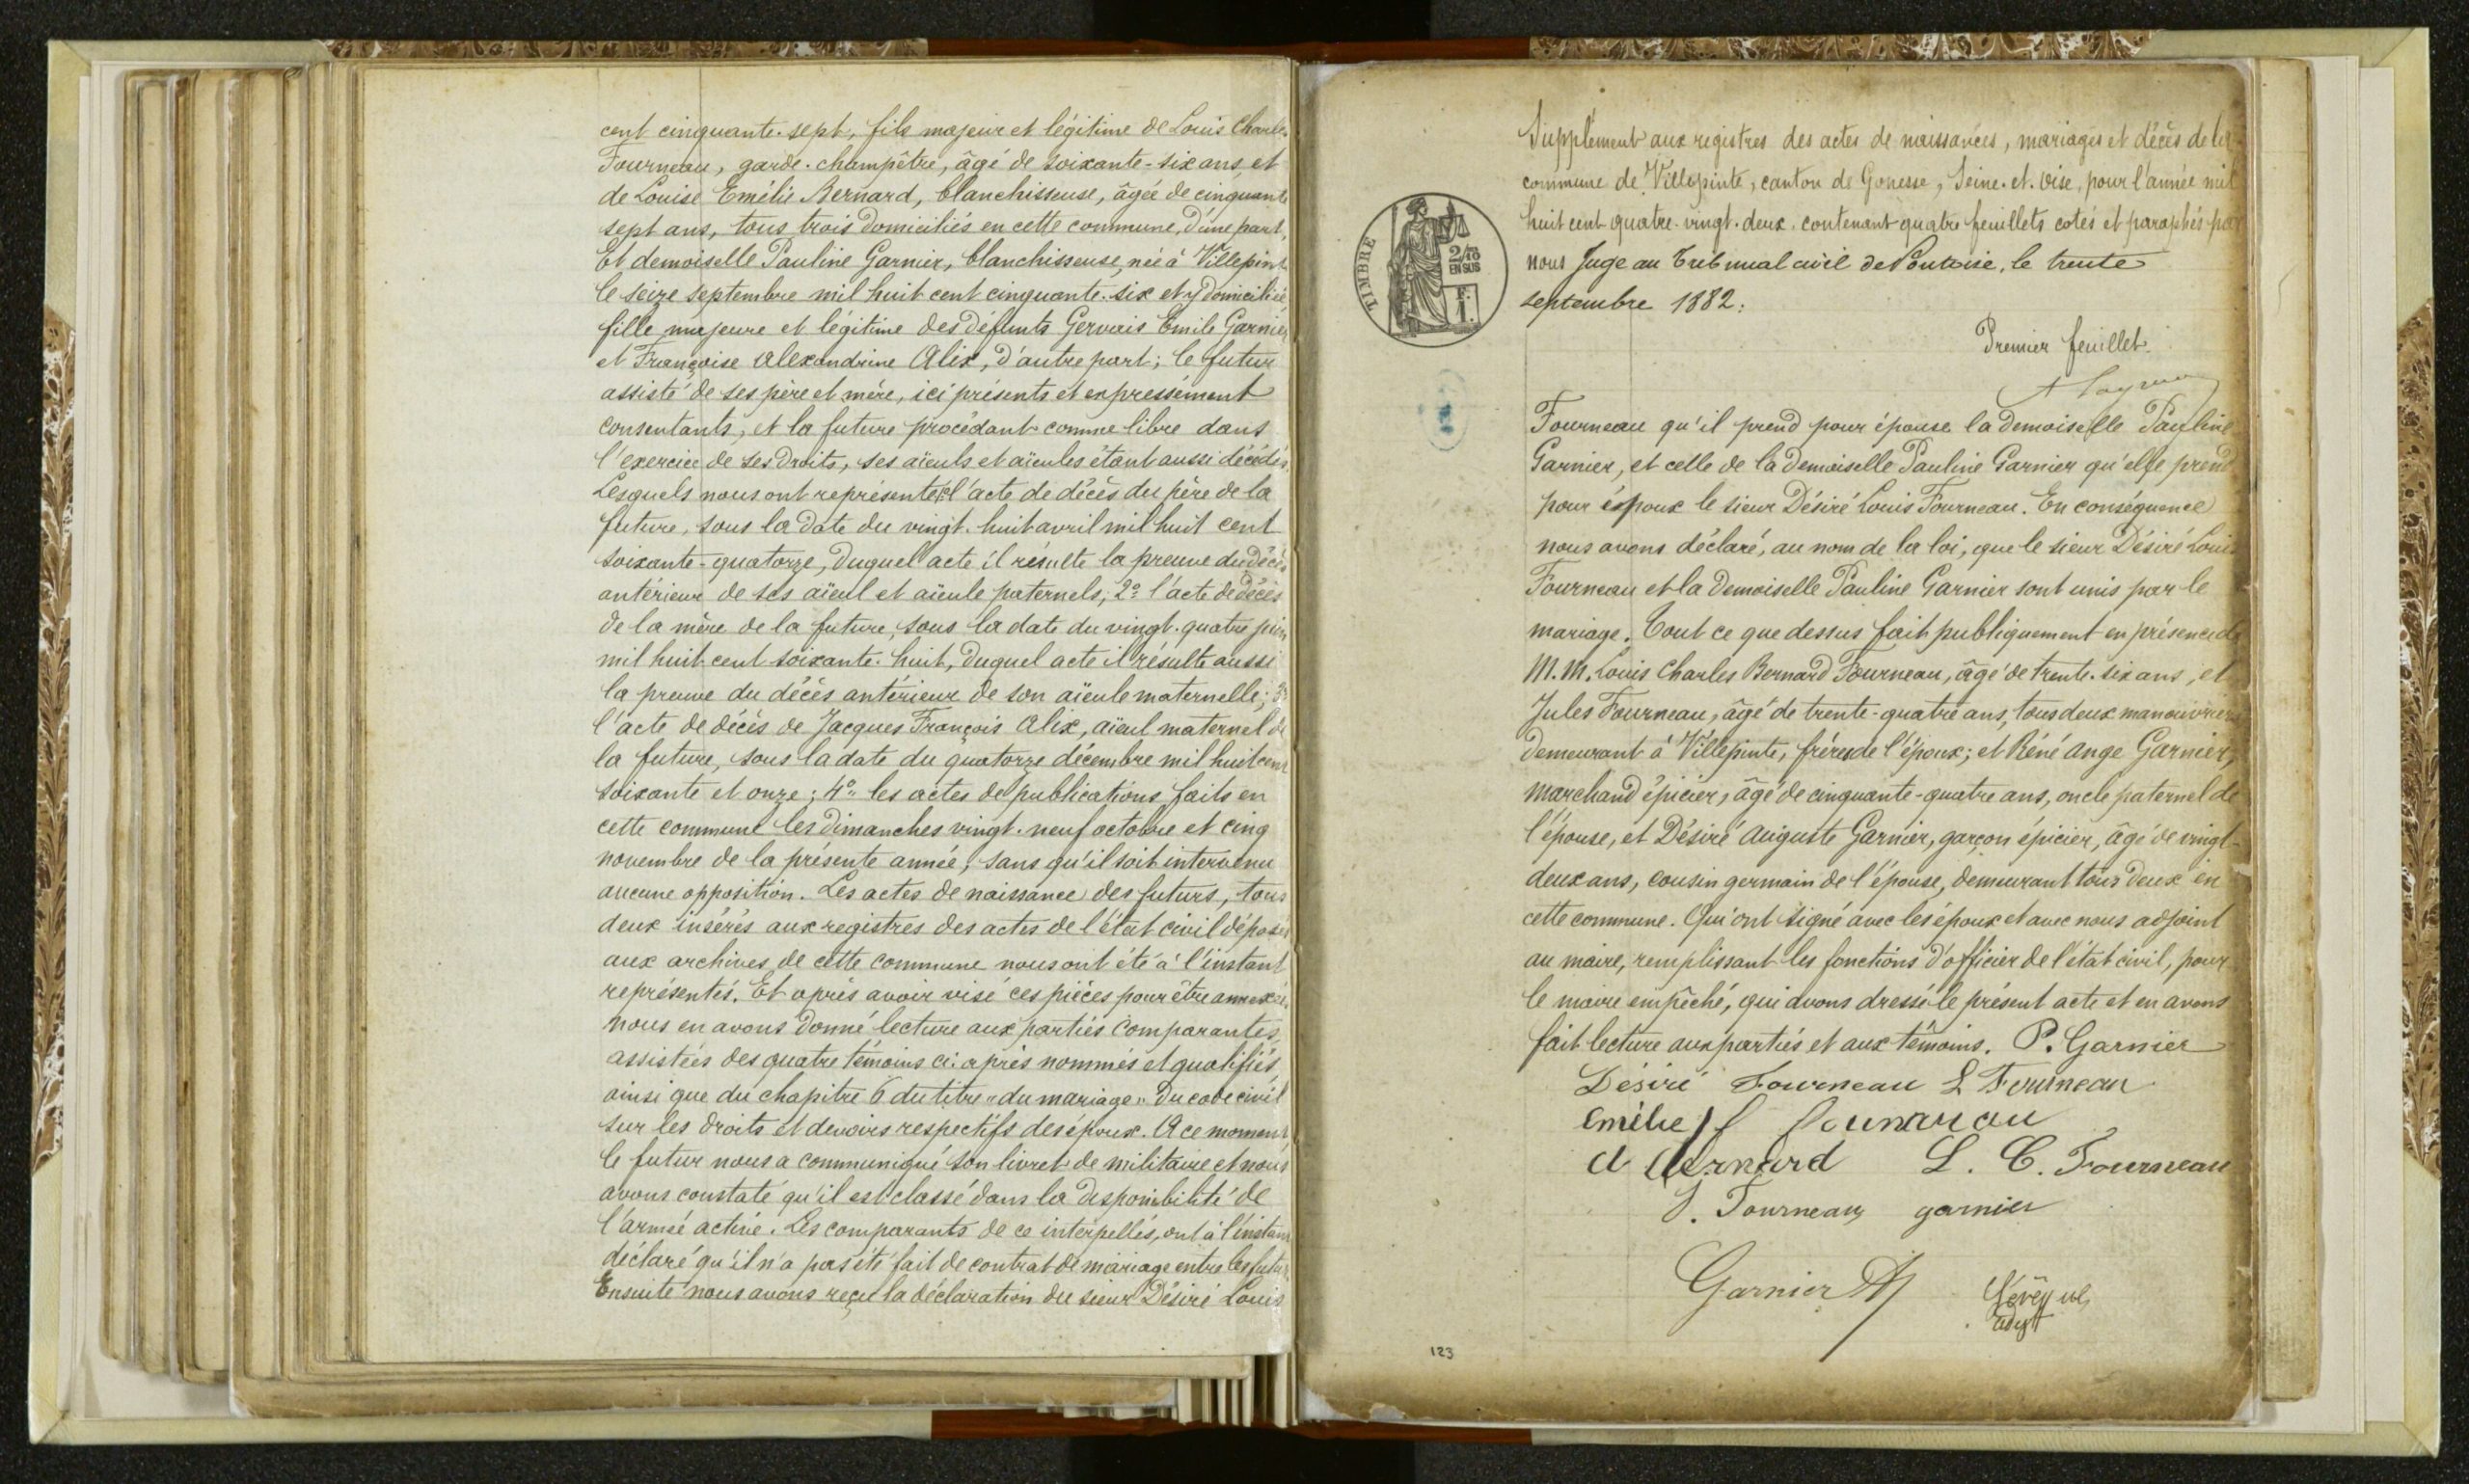 cent cinquante-sept, fils majeur et légitime de Louis Charles
Fourneau, garde-champêtre, âgé de soixante-six ans, et
de Louise Emélie Bernard, blanchisseuse, âgée de cinquante
sept ans, tous trois domiciliés en cette commune, d'une part,
Et demoiselle Pauline Garnier, blanchisseuse, née à Villepinte
le seize septembre mil huit cent cinquante-six et y domiciliée
fille majeure et légitime des défunts Gervais Emile Garnier
et Françoise Alexandrine Alix, d'autre part; le futur
assisté de ses père et mère, ici présents et expressément
consentants, et la future procédant comme libre dans
l'exercice de ses droits, ses aïeuls et aïeules étant aussi décédés.
Lesquels nous ont représenté l'acte de décès du père de la
future, sous la date du vingt-huit avril mil huit cent
soixante-quatorze, duquel acte il résulte la preuve du décès
antérieur de ses aïeul et aïeule paternels; 2° l'acte de décès
de la mère de la future, sous la date du vingt-quatre juin
mil huit cent soixante-huit, duquel acte il résulte aussi
la preuve du décès antérieur de son aïeule maternelle; 3°
l'acte de décès de Jacques François Alix, aïeul maternel de
la future, sous la date du quatorze décembre mil huit cent
soixante et onze; 4° les actes de publications faits en
cette commune les dimanches vingt-neuf octobre et cinq
novembre de la présente année, sans qu'il soit intervenu
aucune opposition. Les actes de naissance des futurs, tous
deux insérés aux registres des actes de l'état civil déposés
aux archives de cette commune nous ont été à l'instant
représentés. Et après avoir visé ces pièces pour être annexées
nous en avons donné lecture aux parties comparantes,
assistées des quatre témoins ci-après nommés et qualifiés,
ainsi que du chapitre 6 du titre "du mariage" du code civil
sur les droits et devoirs respectifs des époux. A ce moment
le futur nous a communiqué son livret de militaire et nous
avons constaté qu'il est classé dans la disponibilité de
l'armée active. Les comparants de ce interpellés, ont à l'instant
déclaré qu'il n'a pas été fait de contrat de mariage entre les futurs
Ensuite nous avons reçu la déclaration du sieur Désiré Louis
Supplément aux registres des actes de naissances, mariages et décès de la
commune de Villepinte, canton de Gonesse, Seine-et-Oise, pour l'année mil
huit cent quatre-vingt-deux, contenant quatre feuillets cotés et paraphés par
nous Juge au Tribunal civil de Pontoise, le trente
septembre 1882.
TIMBRE
2/10
EN SUS
F.
1.
Premier feuillet.
Fourneau qu'il prend pour épouse la demoiselle Pauline
Garnier, et celle de la demoiselle Pauline Garnier qu'elle prend
pour époux le sieur Désiré Louis Fourneau. En conséquence
nous avons déclaré, au nom de la loi, que le sieur Désiré Louis
Fourneau et la demoiselle Pauline Garnier sont unis par le
mariage. Tout ce que dessus fait publiquement en présence de
M.M. Louis Charles Bernard Fourneau, âgé de trente-six ans, et
Jules Fourneau, âgé de trente-quatre ans, tous deux manouvriers
demeurant à Villepinte, frères de l'époux; et Réné Ange Garnier,
marchand épicier, âgé de cinquante-quatre ans, oncle paternel de
l'épouse, et Désiré Auguste Garnier, garçon épicier, âgé de vingt-
deux ans, cousin germain de l'épouse, demeurant tous deux en
cette commune. Qui ont signé avec les époux et avec nous adjoint
au maire, remplissant les fonctions d'officier de l'état civil, pour
le maire empêché, qui avons dressé le présent acte et en avons
fait lecture aux parties et aux témoins. P. Garnier
Désiré Fourneau L Fourneau
Emélie
Bernard L. C. Fourneau
J. Fourneau garnier
Garnier A
Lévêque
adjt
123